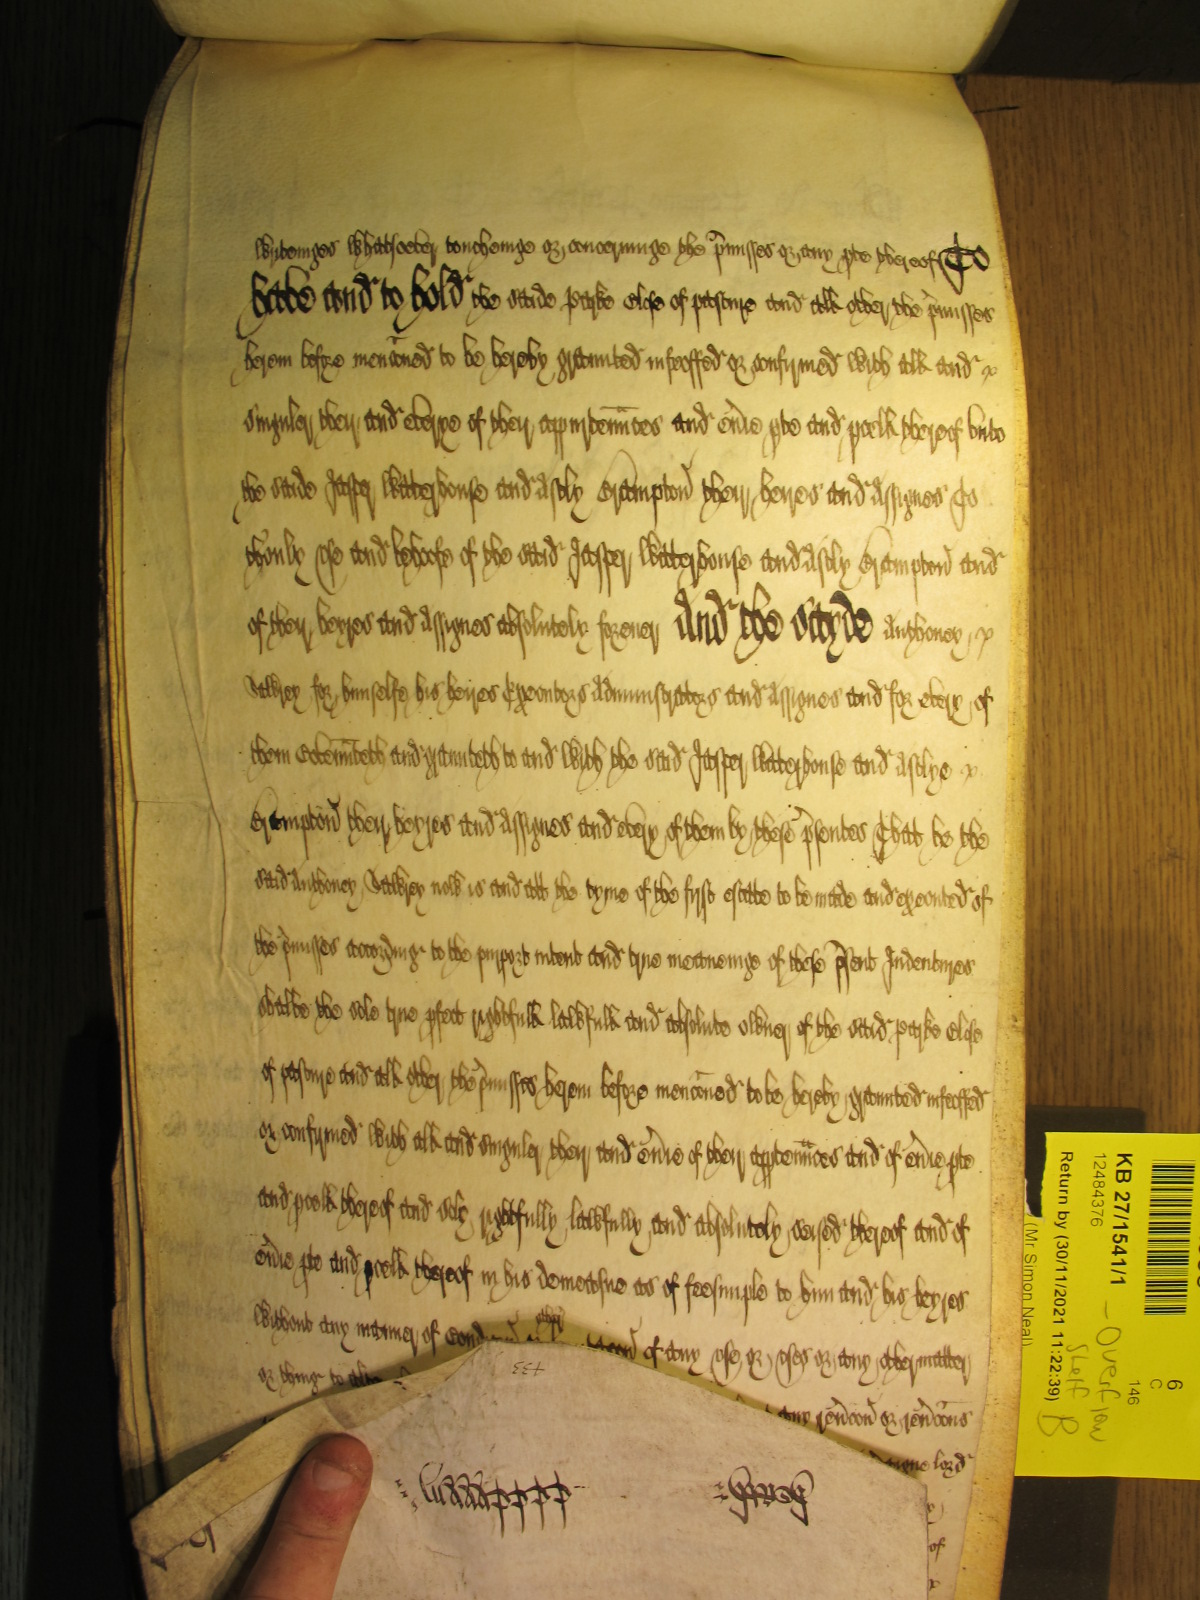 wrytenges whatsoever toucheinge or concerninge the p̃misses or any pte thereof To
have and to hold the saide parke close of pasture and all other the p̃misses
herein before menc̃oned to be hereby graunted infeoffed or confirmed with all and
singuler their and everye of their appurtenn̄ces and ev̄ie pte and pcell thereof unto
the saide Jasper Waterhouse and Astly Crampton their heires and Assignes To
thonly use and behoofe of the said Jasper Waterhouse and Astly Crampton and
of their heyres and Assignes absolutely forever And the sayde Anthoney
for himselfe his heires Executors Administrators and Assignes and for every of
them Coven̄nteth and graunteth to and with the said Jasper Waterhouse and Astlye
Crampton their heyres and Assignes and every of them by these p̃sentes That he the
said Anthoney now is and att the tyme of the first estate to be made and executed of
the p̃misses accordinge to the purport intent and true meaneinge of these p̃sent Indentures
shalbe the sole true pfect rightfull lawfull and absolute owner of the said parke close
of pasture and all other the p̃misses herein before menc̃oned to be hereby graunted infeoffed
or confirmed with all and singuler their and ev̄ie of their apptenn̄ces and of ev̄ie pte
and pcell thereof and solely rightfully lawfully and absolutely seised thereof and of
ev̄ie pte and pcell thereof in his demeasne as of feesimple to him and his heyres
without any manner of of any use or uses or any other matter
or thing to
any or
lord
of
KB 27/1541/1
12484376
Return by (30/11/2021 11:22:39)
(Mr Simon Neal)
6
C
146
- Overflow
Shelf B